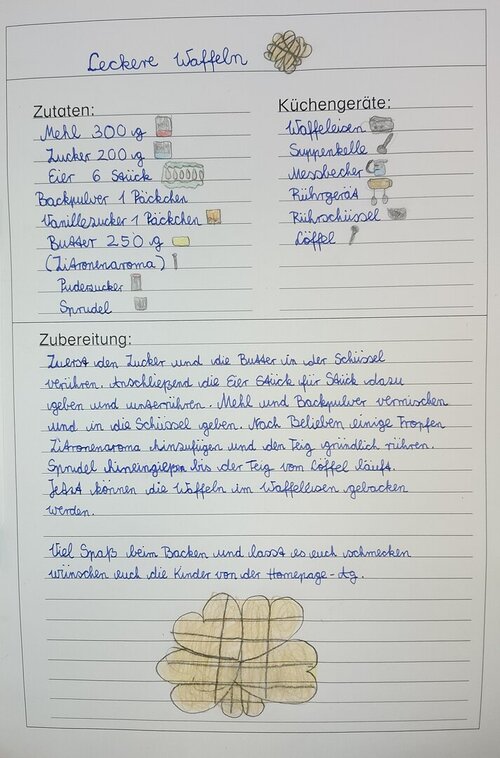 Leckere Waffeln
Zutaten:
Mehl 300 g
Zucker 200 g
Eier 6 Stück
Backpulver 1 Päckchen
Vanillezucker 1 Päckchen
Butter 250 g
(Zitronenaroma)
Puderzucker
Sprudel
Küchengeräte:
Waffeleisen
Suppenkelle
Messbecher
Rührgerät
Rührschüssel
Löffel
Zubereitung:
Zuerst den Zucker und die Butter in der Schüssel
verühren. Anschließend die Eier Stück für Stück dazu
geben und unterrühren. Mehl und Backpulver vermischen
und in die Schüssel geben. Nach Belieben einige Tropfen
Zitronenaroma hinzufügen und den Teig gründlich rühren.
Sprudel hineingießen bis der Teig vom Löffel läuft.
Jetzt können die Waffeln im Waffeleisen gebacken
werden.
Viel Spaß beim Backen und lasst es euch schmecken
wünschen euch die Kinder von der Homepage-Ag.